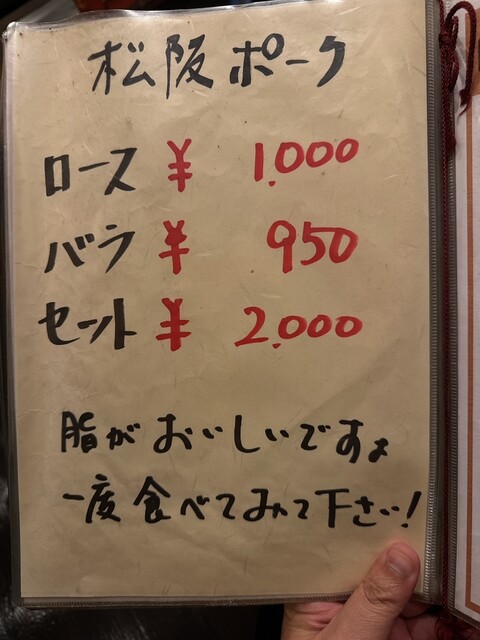 松阪ポーク
ロース ¥ 1.000
バラ ¥ 950
セット ¥ 2.000
脂がおいしいですよ
一度食べてみて下さい!